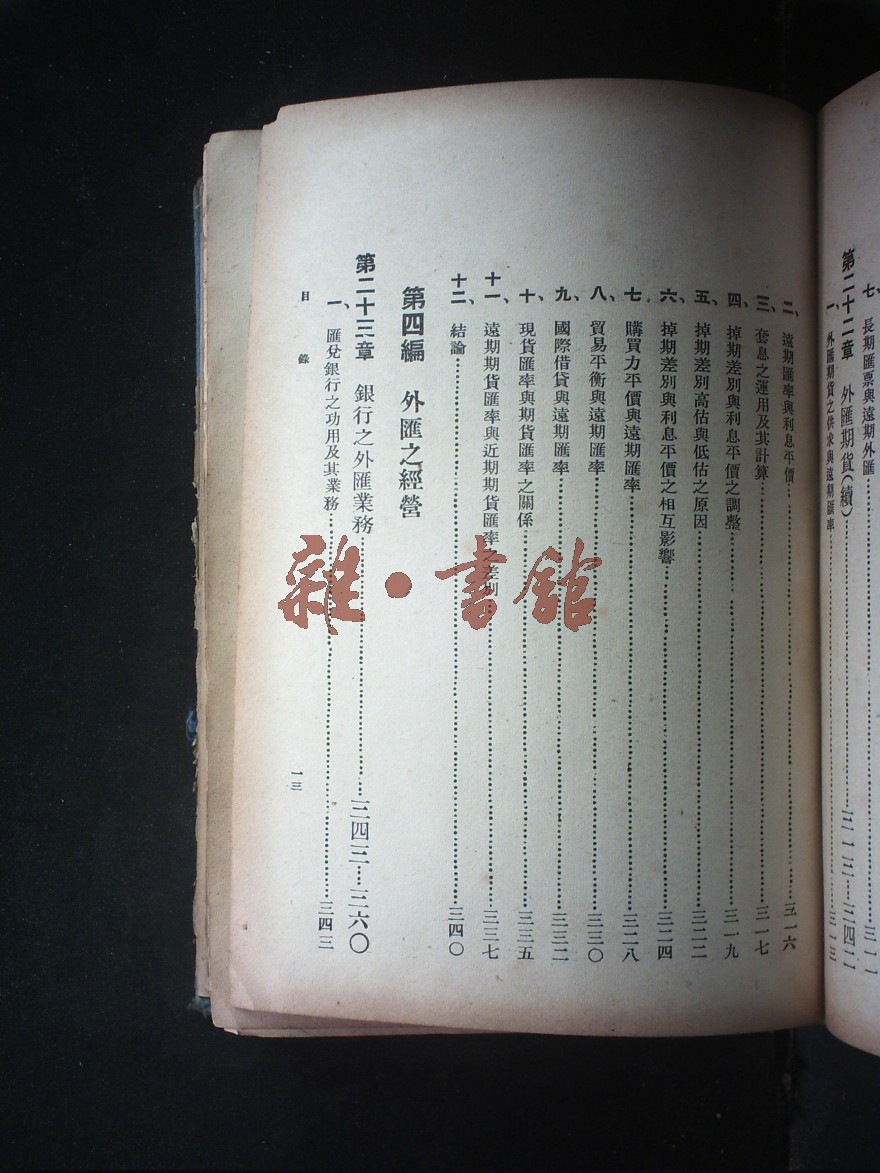 七、長期匯票與遠期外匯……三一一
第二十二章　外匯期貨(續)……三一三—三四二
一、外匯期貨之供求與遠期匯率……三一三
二、遠期匯率與利息平價……三一六
三、套息之運用及其計算……三一七
四、掉期差別與利息平價之調整……三一九
五、掉期差別高估與低估之原因……三二二
六、掉期差別與利息平價之相互影響……三二四
七、購買力平價與遠期匯率……三二八
八、貿易平衡與遠期匯率……三三〇
九、國際借貸與遠期匯率……三三二
十、現貨匯率與期貨匯率之關係……三三五
十一、遠期期貨匯率與近期期貨匯率之差別……三三七
十二、結論……三四〇
第四編　外匯之經營
第二十三章　銀行之外匯業務……三四三—三六〇
一、匯兌銀行之功用及其業務……三四三
目錄
一三
雜·書館